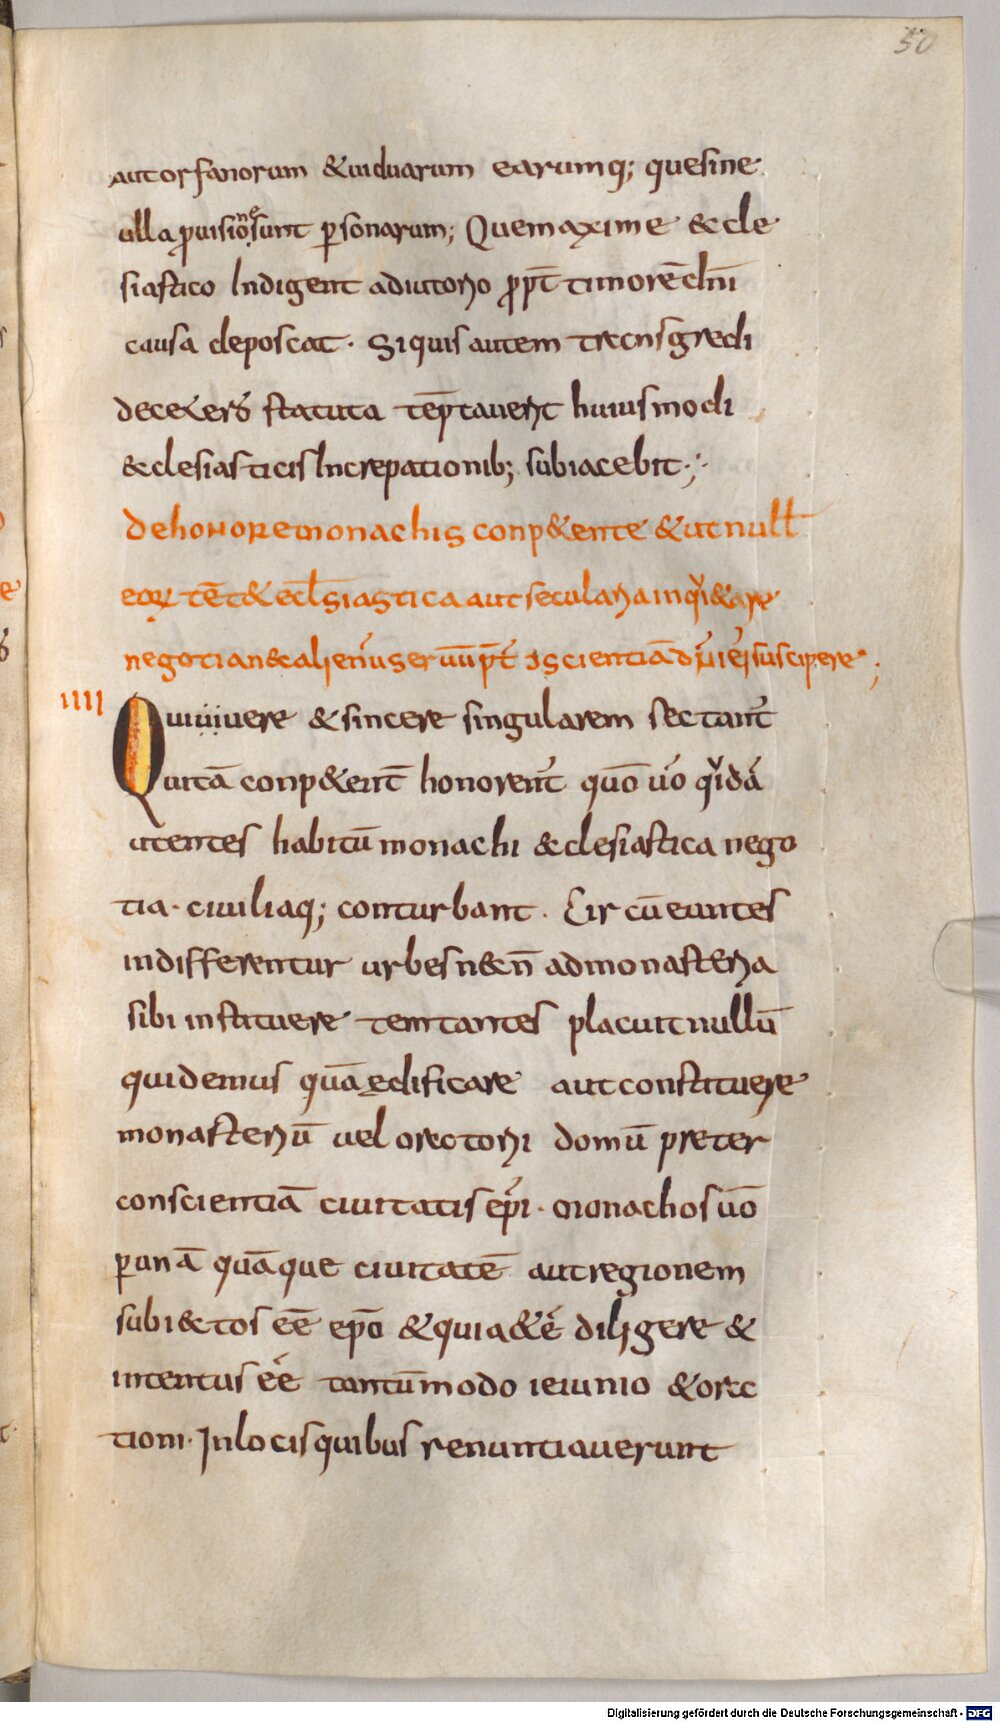 50
aut orfanorum & uiduarum earumq; que sine
ulla ꝓuisio͛ne sunt ꝑsonarum; Que maxime &cle
siastico Indigent adiutorio ꝓpt̄ timorē dn̄i
causa deposcat · Si quis autem transgredi
decexerỏ statuta tēptauerit huiusmodi
&clesiasticis Increpationib; subiacebit ·;·
de honore monachis conp&ente & ut null
eoꝝ tēt& ecl̄siastica aut secularia inq'&are
negotia n& alienus seruū p̄t conscientiā dn̄i ei suscipere;
IIII
Qui uiuere & sincere singularem sectant̄
uitā conp&ent̄ honorent̄ quō ūo q'dā
utentes habitū monachi &clesiastica nego
tia · ciuiliaq; conturbant · Circūeuntes
indifferentur urbes n&n̄ ad monasteria
sibi instituere temtantes placuit nullū
quidem usquā ędificare aut constituere
monasteriū uel orectorii domū preter
conscientiā ciuitatis ep̄i · monachos ūo
ꝑ unā quāque ciuitatē aut regionem
subi&tos eē ep̄o & qui a&ē diligere &
intentus eē tantūmodo ieiunio & orec
tioni · In locis quibus renuntiauerunt
Digitalisierung gefördert durch die Deutsche Forschungsgemeinschaft · DFG